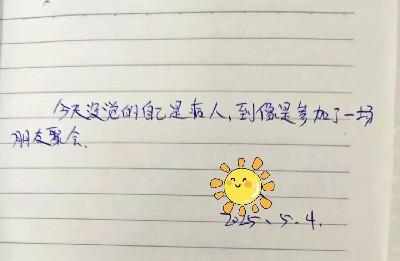 今天没觉的自己是病人,到像是参加了一场
朋友聚会.
2025.5.4.